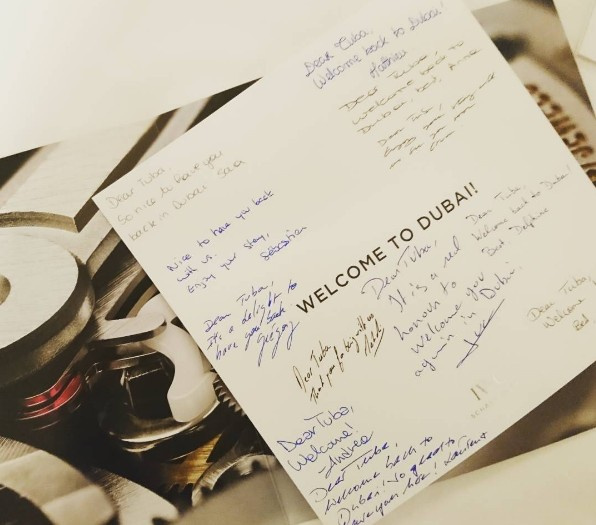 Dear Tuba,
Welcome back to Dubai!
Mathieu
Dear Tuba,
Welcome back to
Dubai,
Dear Tuba,
Dear Tuba,
So nice to have you
back in Dubai
Nice to have you back
with us.
Enjoy your stay,
Sébastien
Dear Tuba,
It's a delight to
have you back
WELCOME TO DUBAI!
Dear Tuba,
It is a real
honour to
Welcome you
again in Dubai.
Dear Tuba,
Welcome back to Dubai!
Best Delphine
Dear Tuba,
Welcome
Dear Tuba,
Thank you for being with us
Dear Tuba,
Welcome!
Andrea
Dear Tuba,
Welcome back to
Dubai, so great to
have you here! Laurent